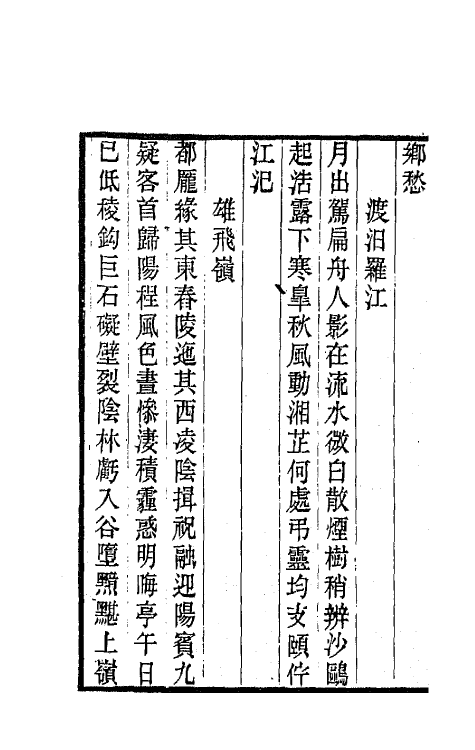 鄉愁
渡汨羅江
月出駕扁舟人影在流水微白散煙樹稍辨沙鷗
起浩露下寒皐秋風動湘芷何處弔靈均支頤佇
江汜
雄飛嶺
都龐緣其東舂陵迤其西凌陰揖祝融迎陽賓九
疑客首歸陽程風色晝慘淒積霾惑明晦亭午日
已低稜鈎巨石礙壁裂陰林虧入谷墮黯黮上嶺